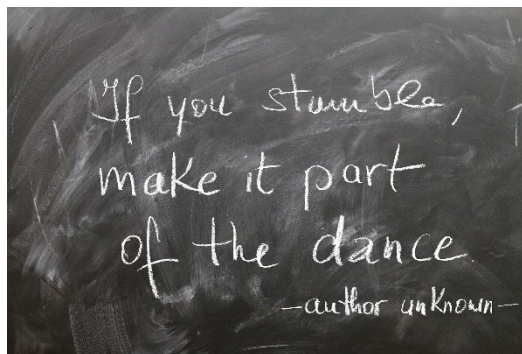 If you stumble,
make it part
of the dance
-author unknown-